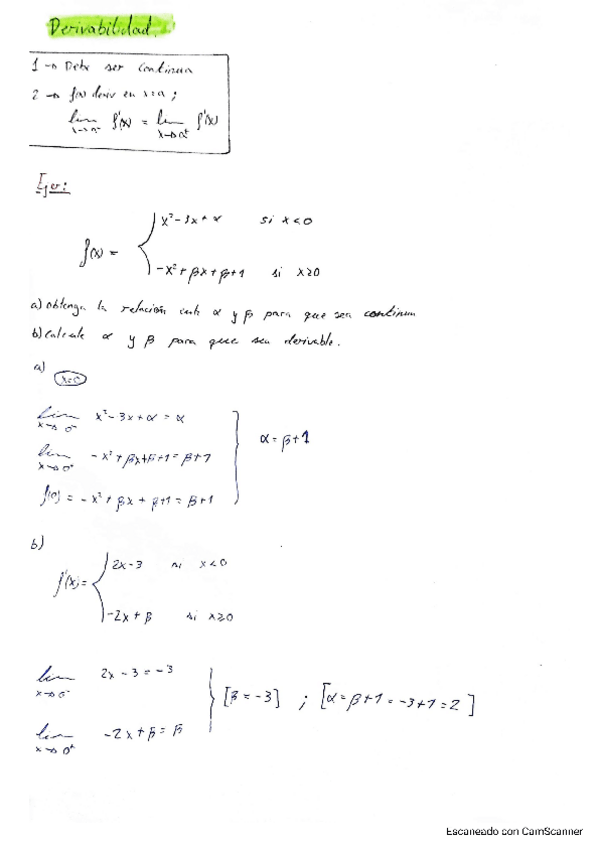 Derivabilidad.
1 → Debe ser continua
2 → f(x) deriv en x=a;
lim x→a⁻ f'(x) = lim x→a⁺ f'(x)
Ejer:
f(x) = { x²-3x+α si x<0
-x²+βx+β+1 si x≥0
a) obtenga la relación entre α y β para que sea continua
b) calcule α y β para que sea derivable.
a)
x=0
lim x→0⁻ x²-3x+α = α
lim x→0⁺ -x²+βx+β+1 = β+1
f(0) = -x²+βx+β+1 = β+1
α = β+1
b)
f'(x) = { 2x-3 si x<0
-2x+β si x≥0
lim x→0⁻ 2x-3 = -3
lim x→0⁺ -2x+β = β
[β = -3] ; [α = β+1 = -3+1 = 2]
Escaneado con CamScanner